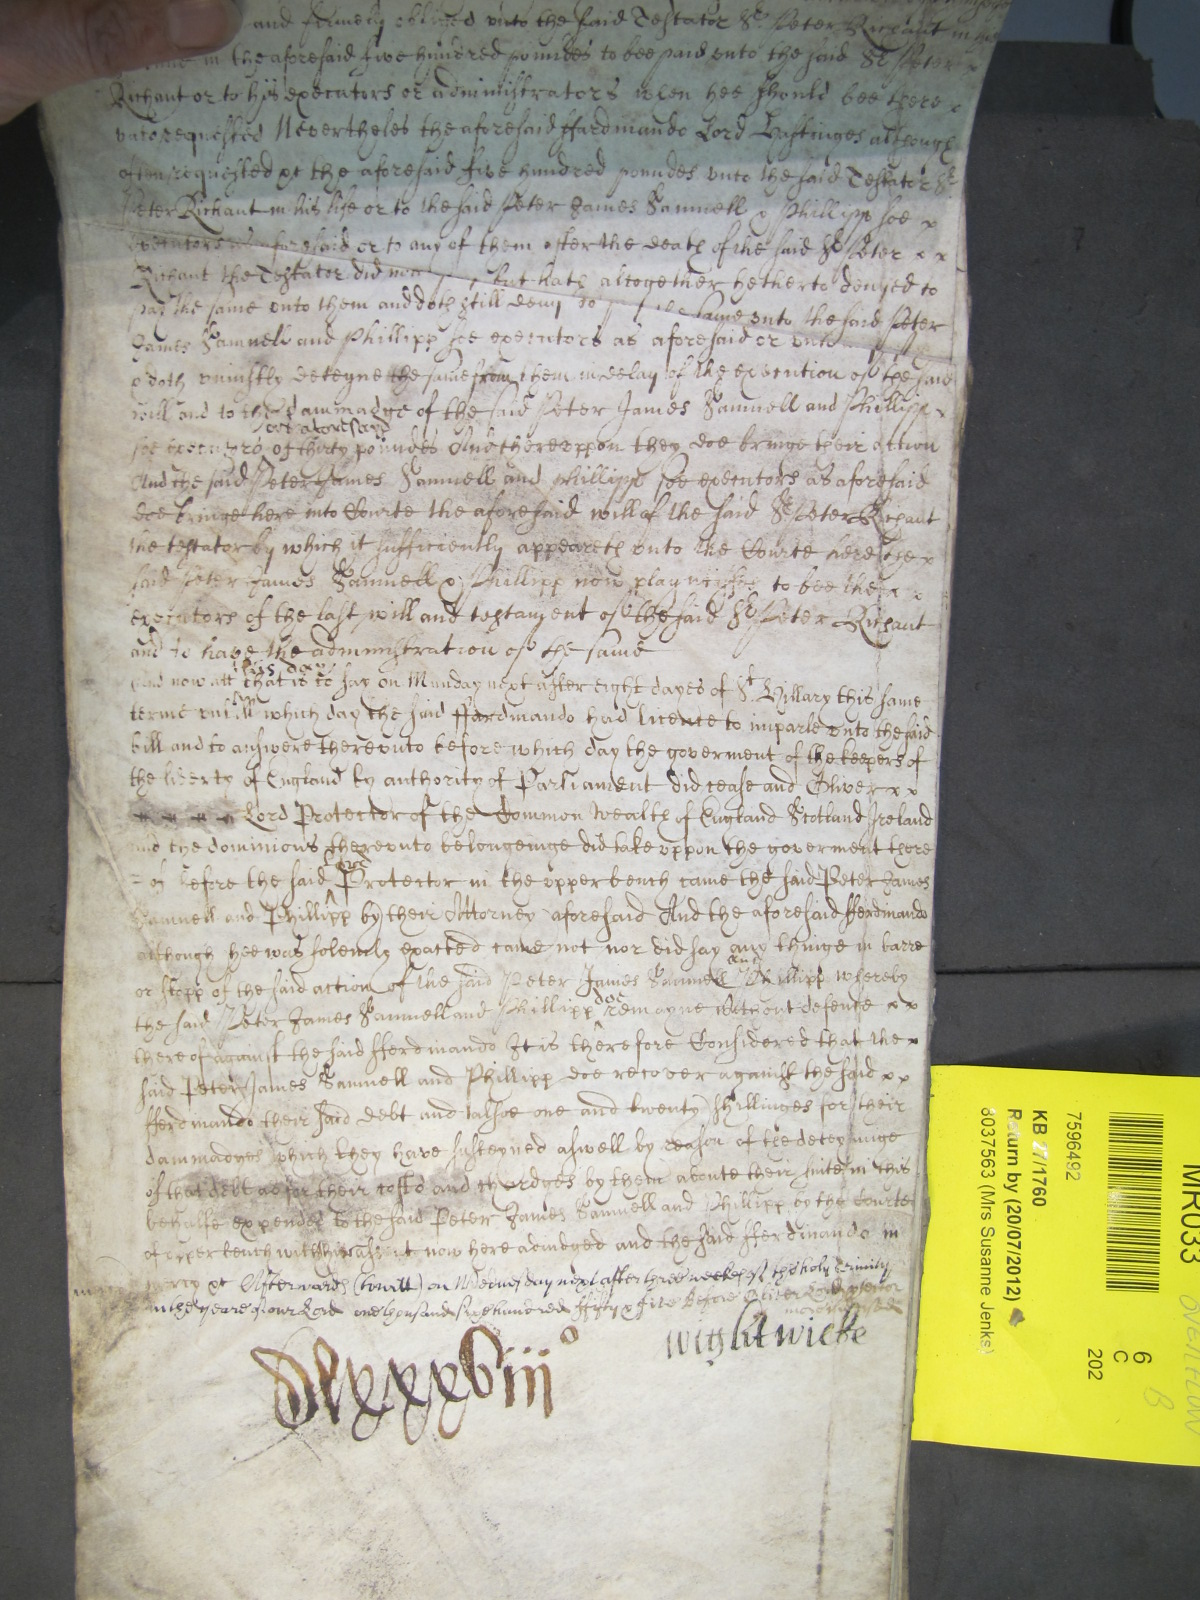 and firmely obliged unto the said Testator Sr Peter Richaut in his
in the aforesaid five hundred poundes to bee paid unto the said Sr Peter x
Richaut or to his executors or administrators when hee should bee there x
unto requested Nevertheles the aforesaid ffardinando Lord Hastinges although
often requested xc the aforesaid five hundred poundes unto the said Testator Sr
Peter Richaut in his life or to the said Peter James Samuell & Phillipp doe x
executors aforesaid or to any of them after the death of the said Sr Peter x x
Richaut the Testator did not but hath altogether hetherto denyed to
pay the same unto them and doth still deny to the same unto the said Peter
James Samuell and Phillipp doe executors as aforesaid or unto
& doth uniustly deteyne the same from them in delay of the execution of the said
will and to the dammadge of the said Peter James Samuell and Phillipp x
as aforesaid
executors of thirty poundes And thereuppon they doe bringe their action
And the said Peter James Samuell and Phillipp doe executors as aforesaid
doe bringe here into Courte the aforesaid will of the said Sr Peter Richaut
the testator by which it sufficiently appeareth unto the Courte here the x
said Peter James Samuell & Phillipp now playntiffes to bee the x x
executors of the last will and testament of the said Sr Peter Richaut
and to have the administration of the same
this day
And now att that is to say on Munday next after eight dayes of St Hillary this same
terme untill which day the said ffardinando had licence to imparle unto the said
bill and to answere thereunto before which day the goverment of the keepers of
the liberty of England by authority of Parliament did cease and Oliver x x
x x x x Lord Protector of the Common Wealth of England Scotland Ireland
and the dominions thereunto belongeinge did take uppon the goverment there
Lord
= of before the said Protector in the upper bench came the said Peter James
Samuell and Phillipp by their Attorney aforesaid And the aforesaid fferdinando
although hee was solemly exacted came not nor did say any thinge in barre
and
or stopp of the said action of the said Peter James Samuell Phillipp whereby
doe
the said Peter James Samuell and Phillipp remayne without defence x x
thereof against the said fferdinando It is therefore Considered that the x
said Peter James Samuell and Phillipp doe recover against the said x x
fferdinando their said debt and alsoe one and twenty shillinges for their
dammadges which they have susteyned aswell by reason of the deteyninge
of that debt as for their costs and chardges by them aboute their suite in this
behalfe expended to the said Peter James Samuell and Phillipp by the Courte
of upper bench with his assent now here adiudged and the said fferdinando in
mercy xc Afterwards (towitt) on Wednesday next after three weekes of the holy Trinity
in the yeare of our Lord one thousand six hundred fifty & five before Oliver Lord Protector
Dlxxxviiio
wightwicke
MR033
7596492
KB 27/1760
Return by (20/07/2012)
8037563 (Mrs Susanne Jenks)
6
C
202